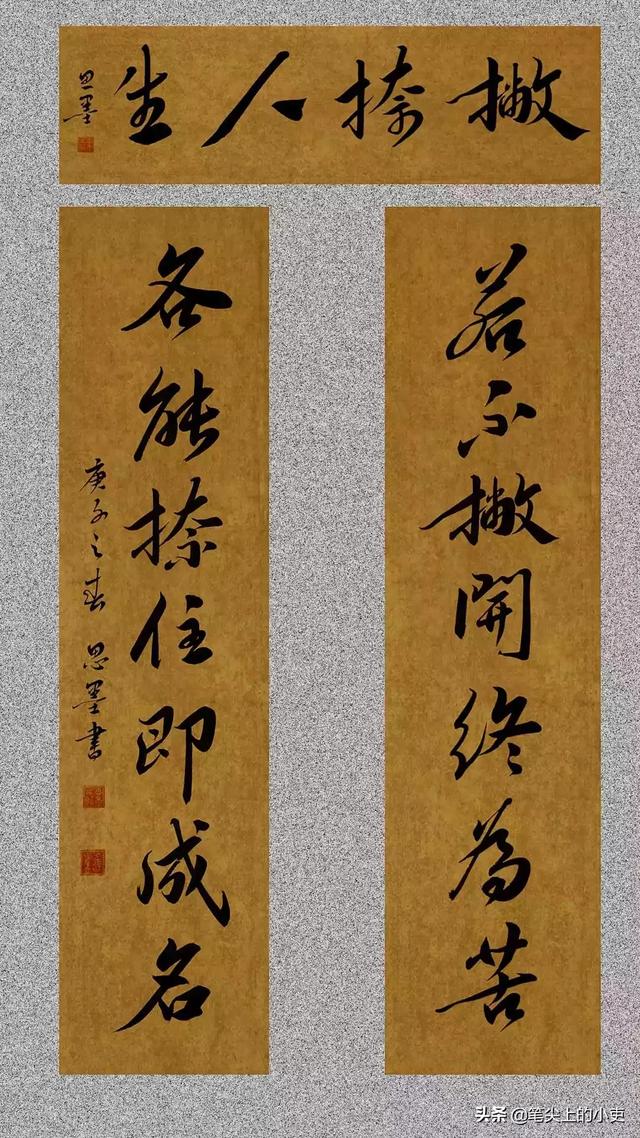 撇捺人生
思墨
若不撇開終為苦
各能捺住即成名
庚子之春 思墨書
头条 @笔尖上的小吏